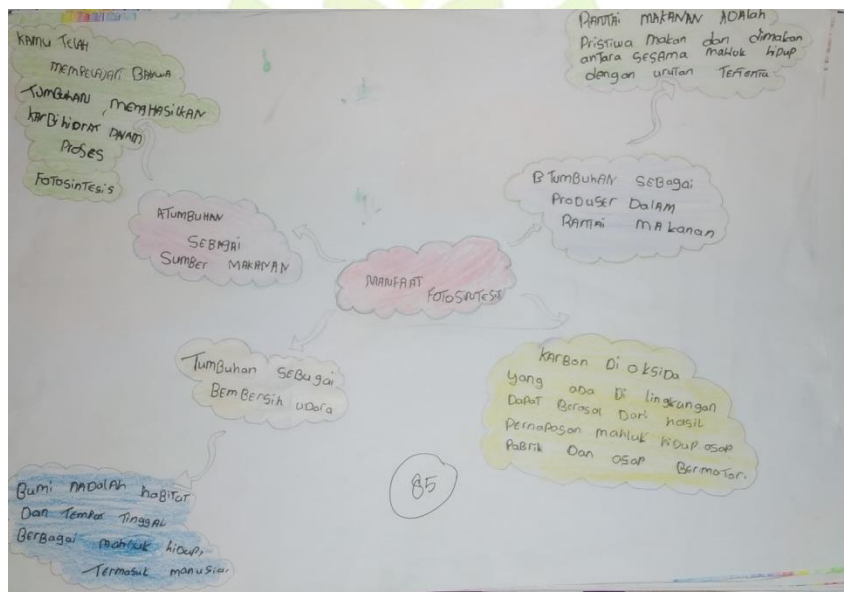 KAMU TELAH
MEMPELAJARI BAHWA
TUMBUHAN MENGHASILKAN
KARBIHIDRAT DALAM
PROSES
FOTOSINTESIS
RANTAI MAKANAN ADALAH
Pristiwa makan dan dimakan
antara SESAMA mahluk hidup
dengan urutan Tertentu
B TUMBUHAN SEBAGAI
PRODUSER DALAM
RANTAI MAKANAN
A TUMBUHAN
SEBAGAI
SUMBER MAKANAN
MANFAAT
FOTOSINTESIS
Tumbuhan SEBugai
BEMBERSIH UDARA
KARBON Di oksida
yang ada Di lingkungan
Dapat Berasal Dari hasil
pernapasan mahluk hidup asap
Pabrik Dan asap Bermotor.
85
Bumi AADALAh haBitat
Dan Tempat TinggAL
BERBAgai mahluk hidup,
Termasuk manusia.